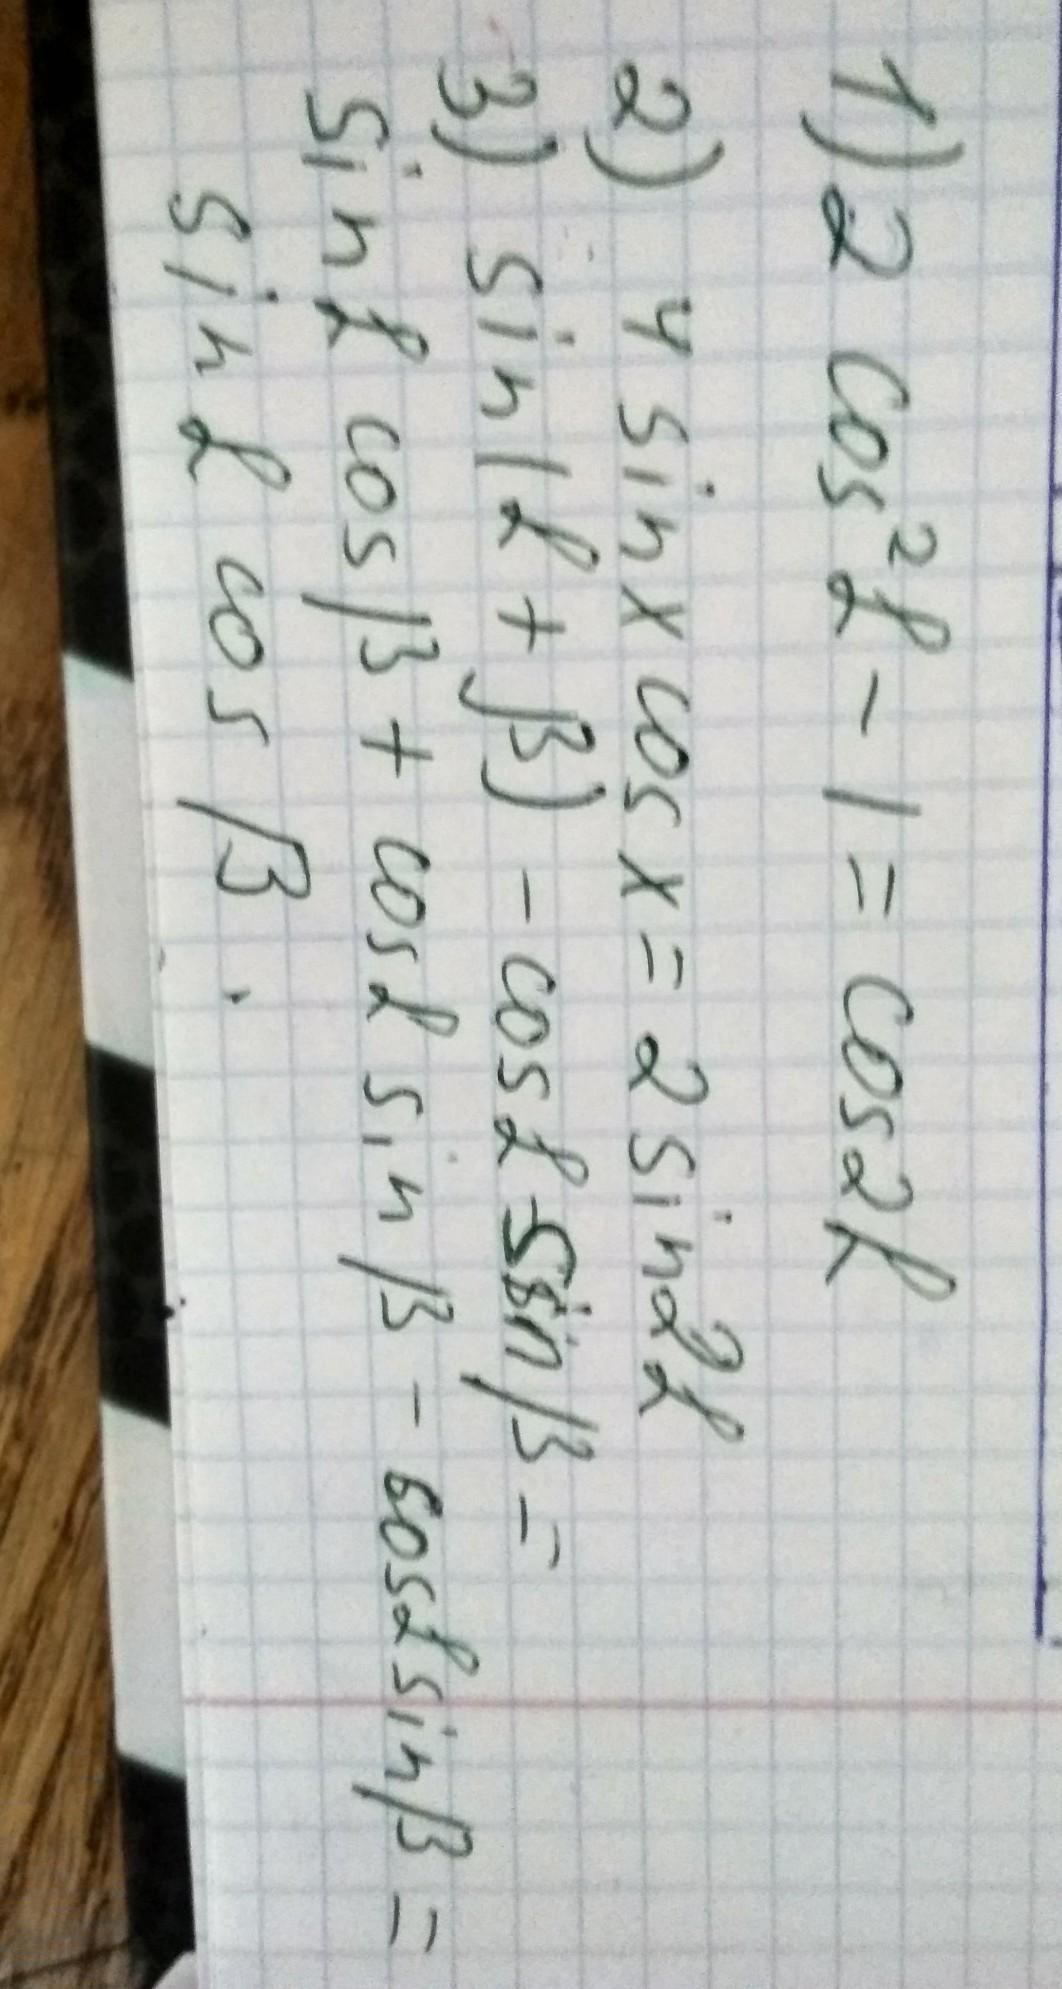 1) 2 cos²α - 1 = cos2α
2) 4 sin x cos x = 2 sin2α
3) sin(α + β) - cosα sinβ =
sinα cosβ + cosα sinβ - cosα sinβ =
sinα cosβ.